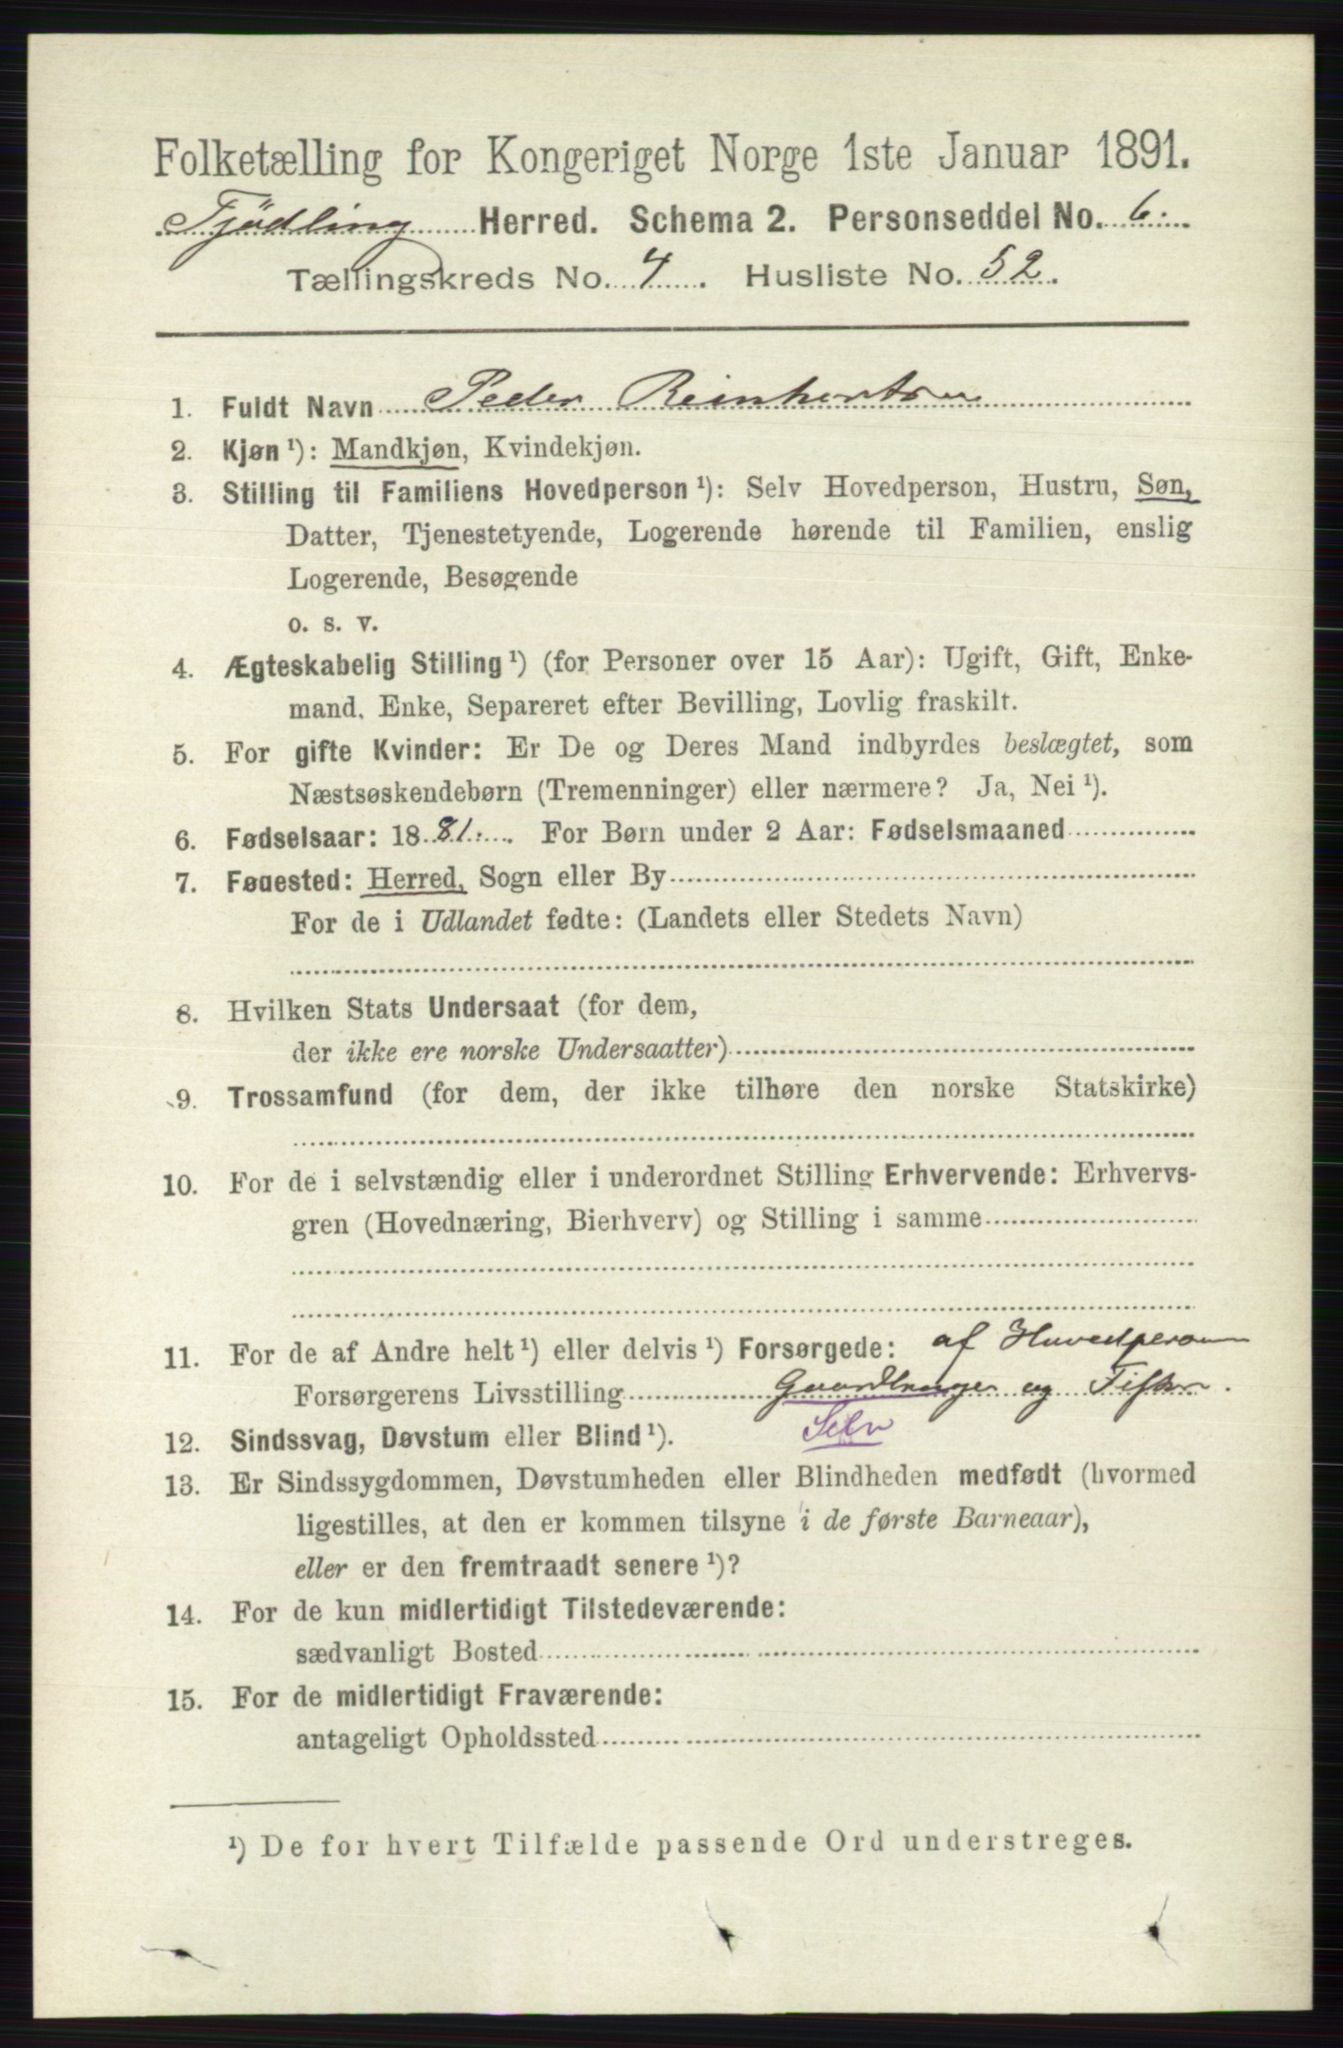 Folketælling for Kongeriget Norge 1ste Januar 1891.
Tjødling Herred. Schema 2. Personseddel No. 6.
Tællingskreds No. 4. Husliste No. 52.
1. Fuldt Navn Peder Reinhertsen
2. Kjøn ¹): Mandkjøn, Kvindekjøn.
3. Stilling til Familiens Hovedperson ¹): Selv Hovedperson, Hustru, Søn,
Datter, Tjenestetyende, Logerende hørende til Familien, enslig
Logerende, Besøgende
o. s. v.
4. Ægteskabelig Stilling ¹) (for Personer over 15 Aar): Ugift, Gift, Enke-
mand, Enke, Separeret efter Bevilling, Lovlig fraskilt.
5. For gifte Kvinder: Er De og Deres Mand indbyrdes beslægtet, som
Næstsøskendebørn (Tremenninger) eller nærmere? Ja, Nei ¹).
6. Fødselsaar: 1881. For Børn under 2 Aar: Fødselsmaaned
7. Fødested: Herred, Sogn eller By
For de i Udlandet fødte: (Landets eller Stedets Navn)
8. Hvilken Stats Undersaat (for dem,
der ikke ere norske Undersaatter)
9. Trossamfund (for dem, der ikke tilhøre den norske Statskirke)
10. For de i selvstændig eller i underordnet Stilling Erhvervende: Erhvervs-
gren (Hovednæring, Bierhverv) og Stilling i samme
11. For de af Andre helt ¹) eller delvis ¹) Forsørgede: af Hovedperson
Forsørgerens Livsstilling Gaardbruger og Fisker.
12. Sindssvag, Døvstum eller Blind ¹). Selv
13. Er Sindssygdommen, Døvstumheden eller Blindheden medfødt (hvormed
ligestilles, at den er kommen tilsyne i de første Barneaar),
eller er den fremtraadt senere ¹)?
14. For de kun midlertidigt Tilstedeværende:
sædvanligt Bosted
15. For de midlertidigt Fraværende:
antageligt Opholdssted
¹) De for hvert Tilfælde passende Ord understreges.